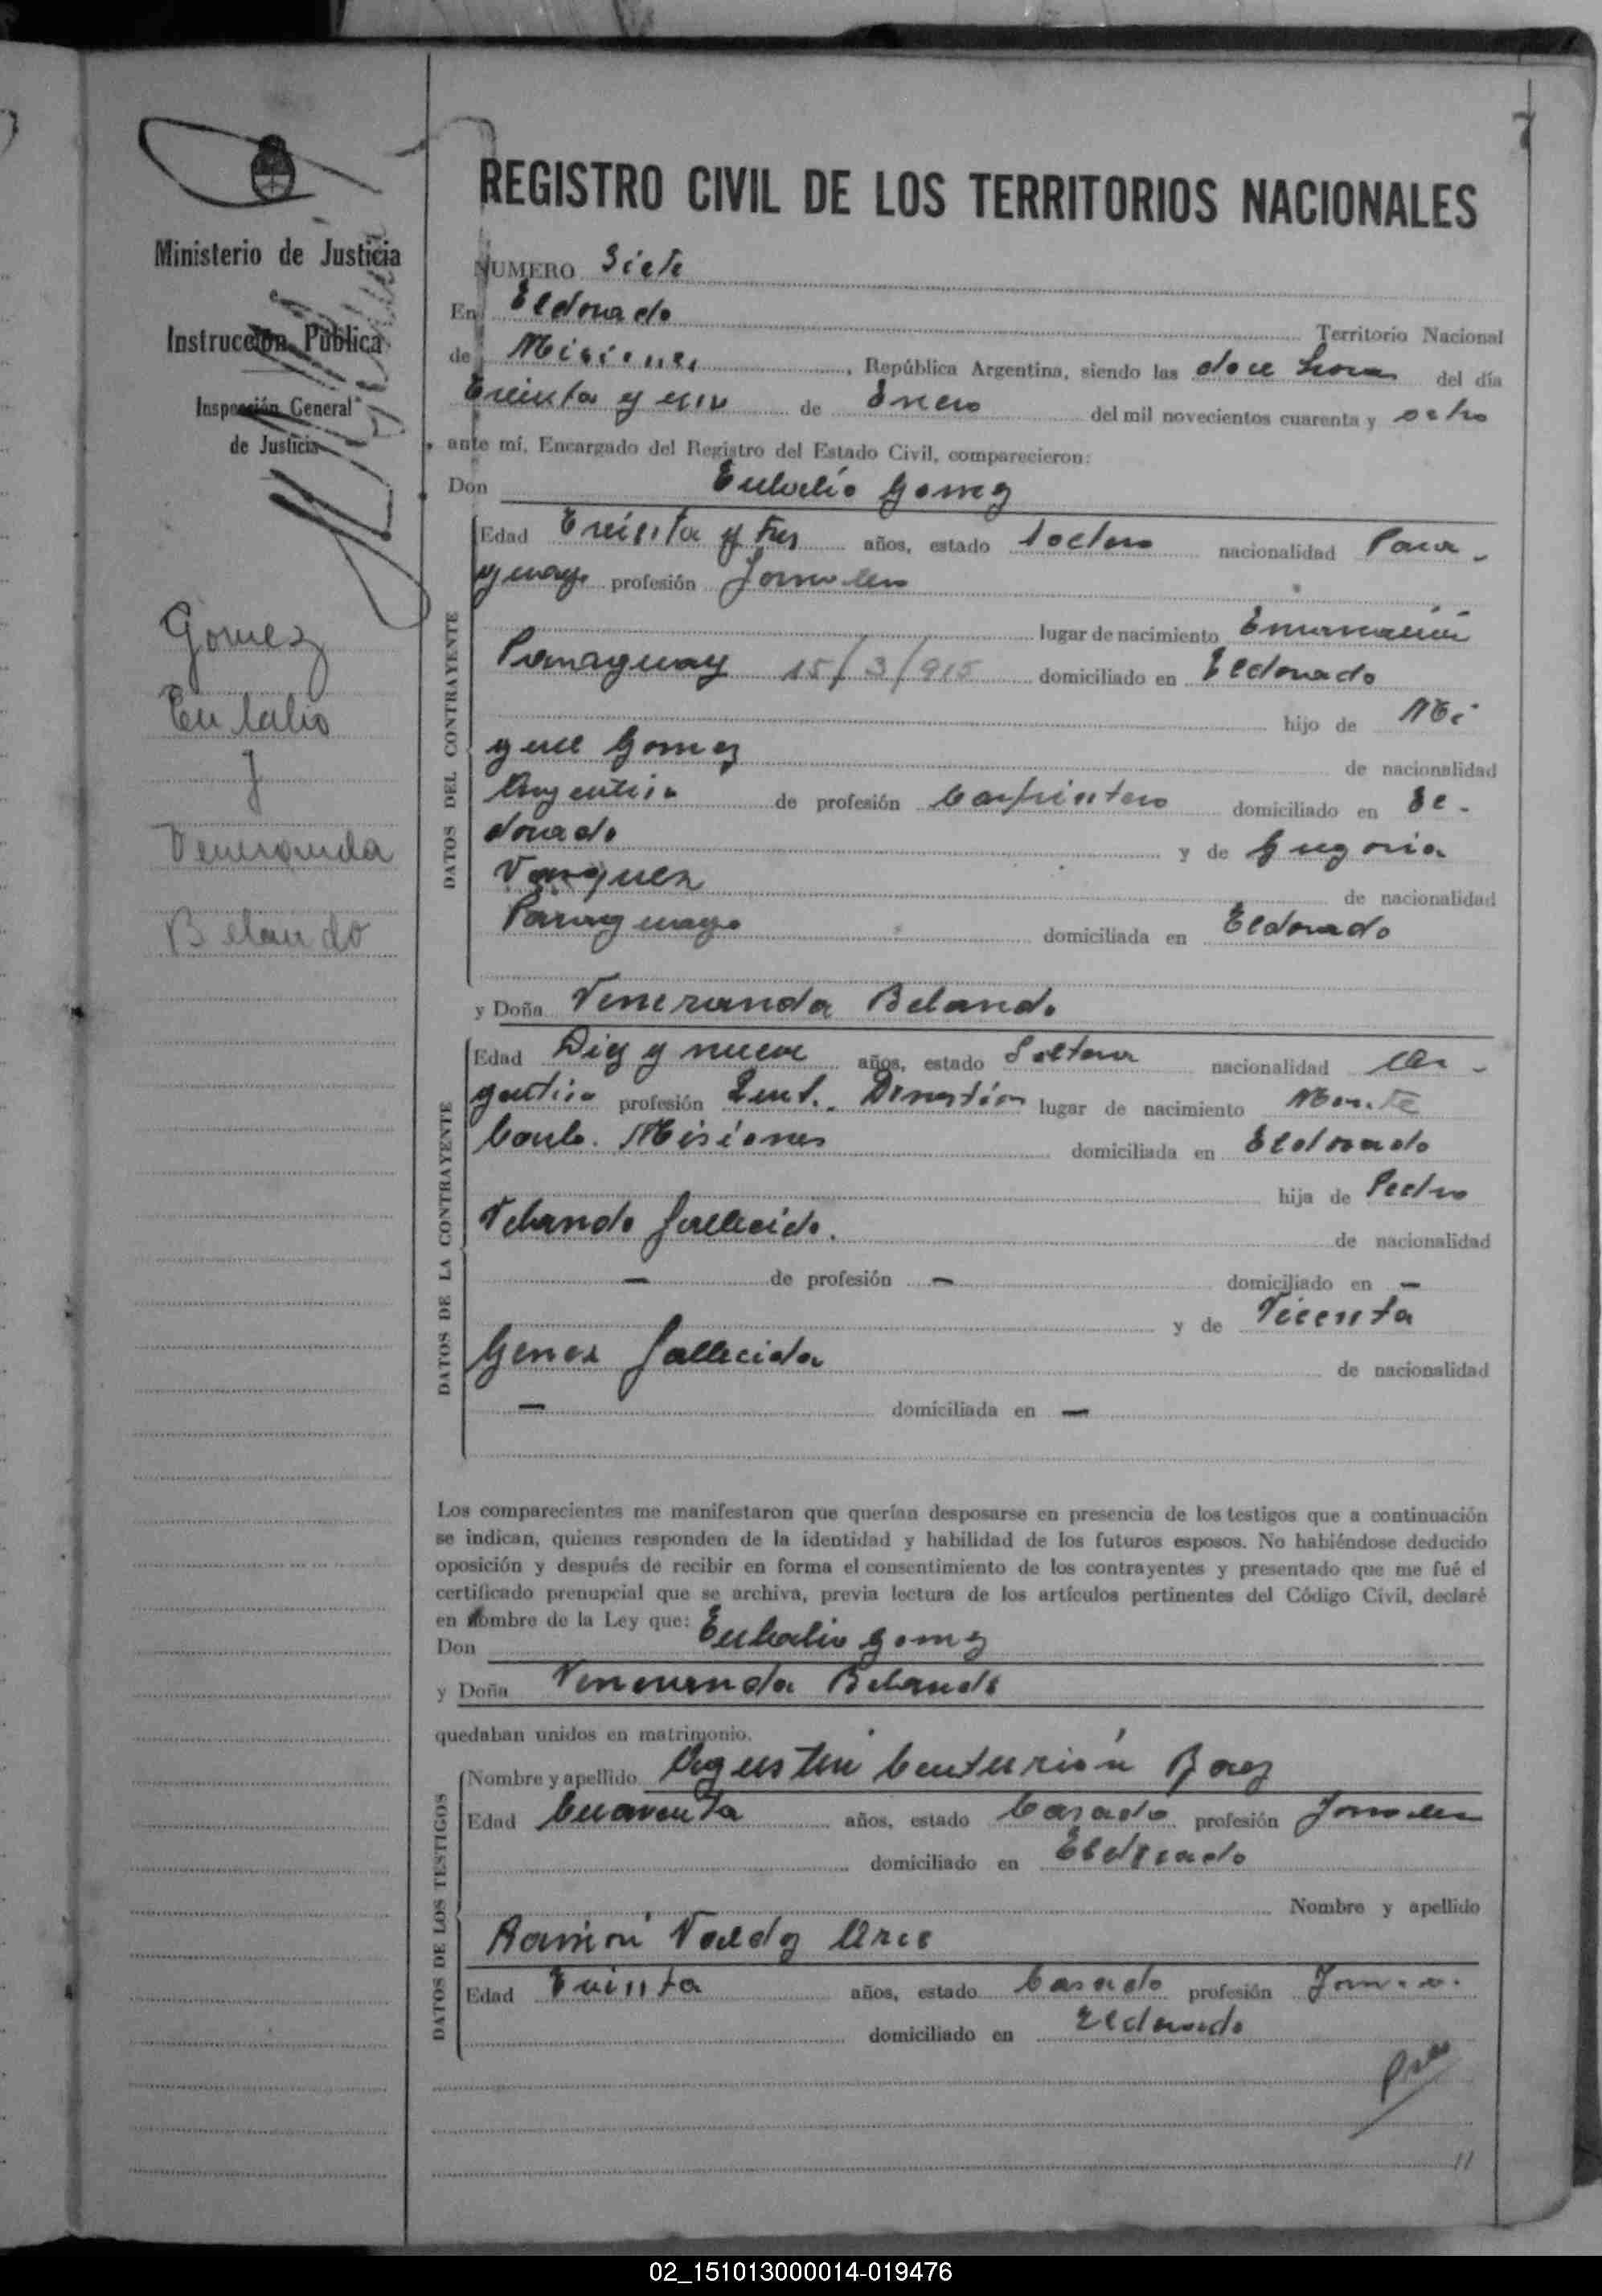 7
REGISTRO CIVIL DE LOS TERRITORIOS NACIONALES
Ministerio de Justicia
Instrucción Pública
Inspección General
de Justicia
Gomez
Eulalio
y
Veneranda
Belando
NUMERO Siete
En Eldorado Territorio Nacional
de Misiones, República Argentina, siendo las doce horas del día
Treinta y uno de Enero del mil novecientos cuarenta y ocho
ante mí, Encargado del Registro del Estado Civil, comparecieron:
Don Eulalio Gomez
DATOS DEL CONTRAYENTE
Edad Treinta y tres años, estado soltero nacionalidad Para-
guayo profesión Jornalero
lugar de nacimiento Encarnación
Paraguay 15/3/915 domiciliado en Eldorado
hijo de Mi
guel Gomez de nacionalidad
Argentino de profesión Carpintero domiciliado en El-
dorado y de Gregoria
Vazquez de nacionalidad
Paraguaya domiciliada en Eldorado
y Doña Veneranda Belando
DATOS DE LA CONTRAYENTE
Edad Diez y nueve años, estado Soltera nacionalidad Ar-
gentina profesión lugar de nacimiento Monte
Carlo. Misiones domiciliada en Eldorado
hija de Pedro
Velando fallecido. de nacionalidad
— de profesión — domiciliado en —
y de Vicenta
Genes fallecida de nacionalidad
— domiciliada en —
Los comparecientes me manifestaron que querían desposarse en presencia de los testigos que a continuación
se indican, quienes responden de la identidad y habilidad de los futuros esposos. No habiéndose deducido
oposición y después de recibir en forma el consentimiento de los contrayentes y presentado que me fué el
certificado prenupcial que se archiva, previa lectura de los artículos pertinentes del Código Civil, declaré
en nombre de la Ley que:
Don Eulalio Gomez
y Doña Veneranda Belando
quedaban unidos en matrimonio.
DATOS DE LOS TESTIGOS
Nombre y apellido Agustin Centurión Baez
Edad Cuarenta años, estado Casado profesión Jornalero
domiciliado en Eldorado
Nombre y apellido
Ramón Valdez
Edad Treinta años, estado Casado profesión
domiciliado en Eldorado
//
02_151013000014-019476